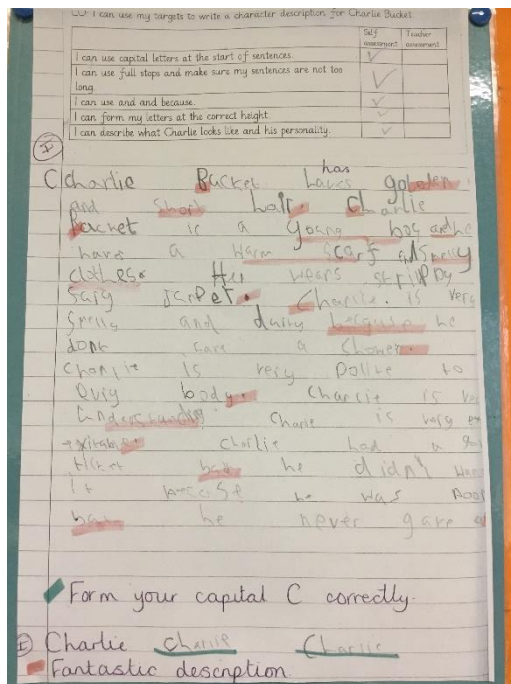 LO I can use my targets to write a character description for Charlie Bucket
Self assessment
Teacher assessment
I can use capital letters at the start of sentences.
I can use full stops and make sure my sentences are not too long.
I can use and and because.
I can form my letters at the correct height.
I can describe what Charlie looks like and his personality.
I
has
C charlie Bucket haves golden
and short hair. Charlie
Bucket is a young boy and he
havs a warm scarf and Smelly
clothes. He wears strippy
Charlie. is very
Smelly and he
dont a Shower.
Charlie is very polite to
body. Charlie is
Understanding Charlie is very
Charlie had a
ticket he didn't
it he was Poor
he never gave
Form your capital C correctly.
I Charlie Charlie Charlie
Fantastic description